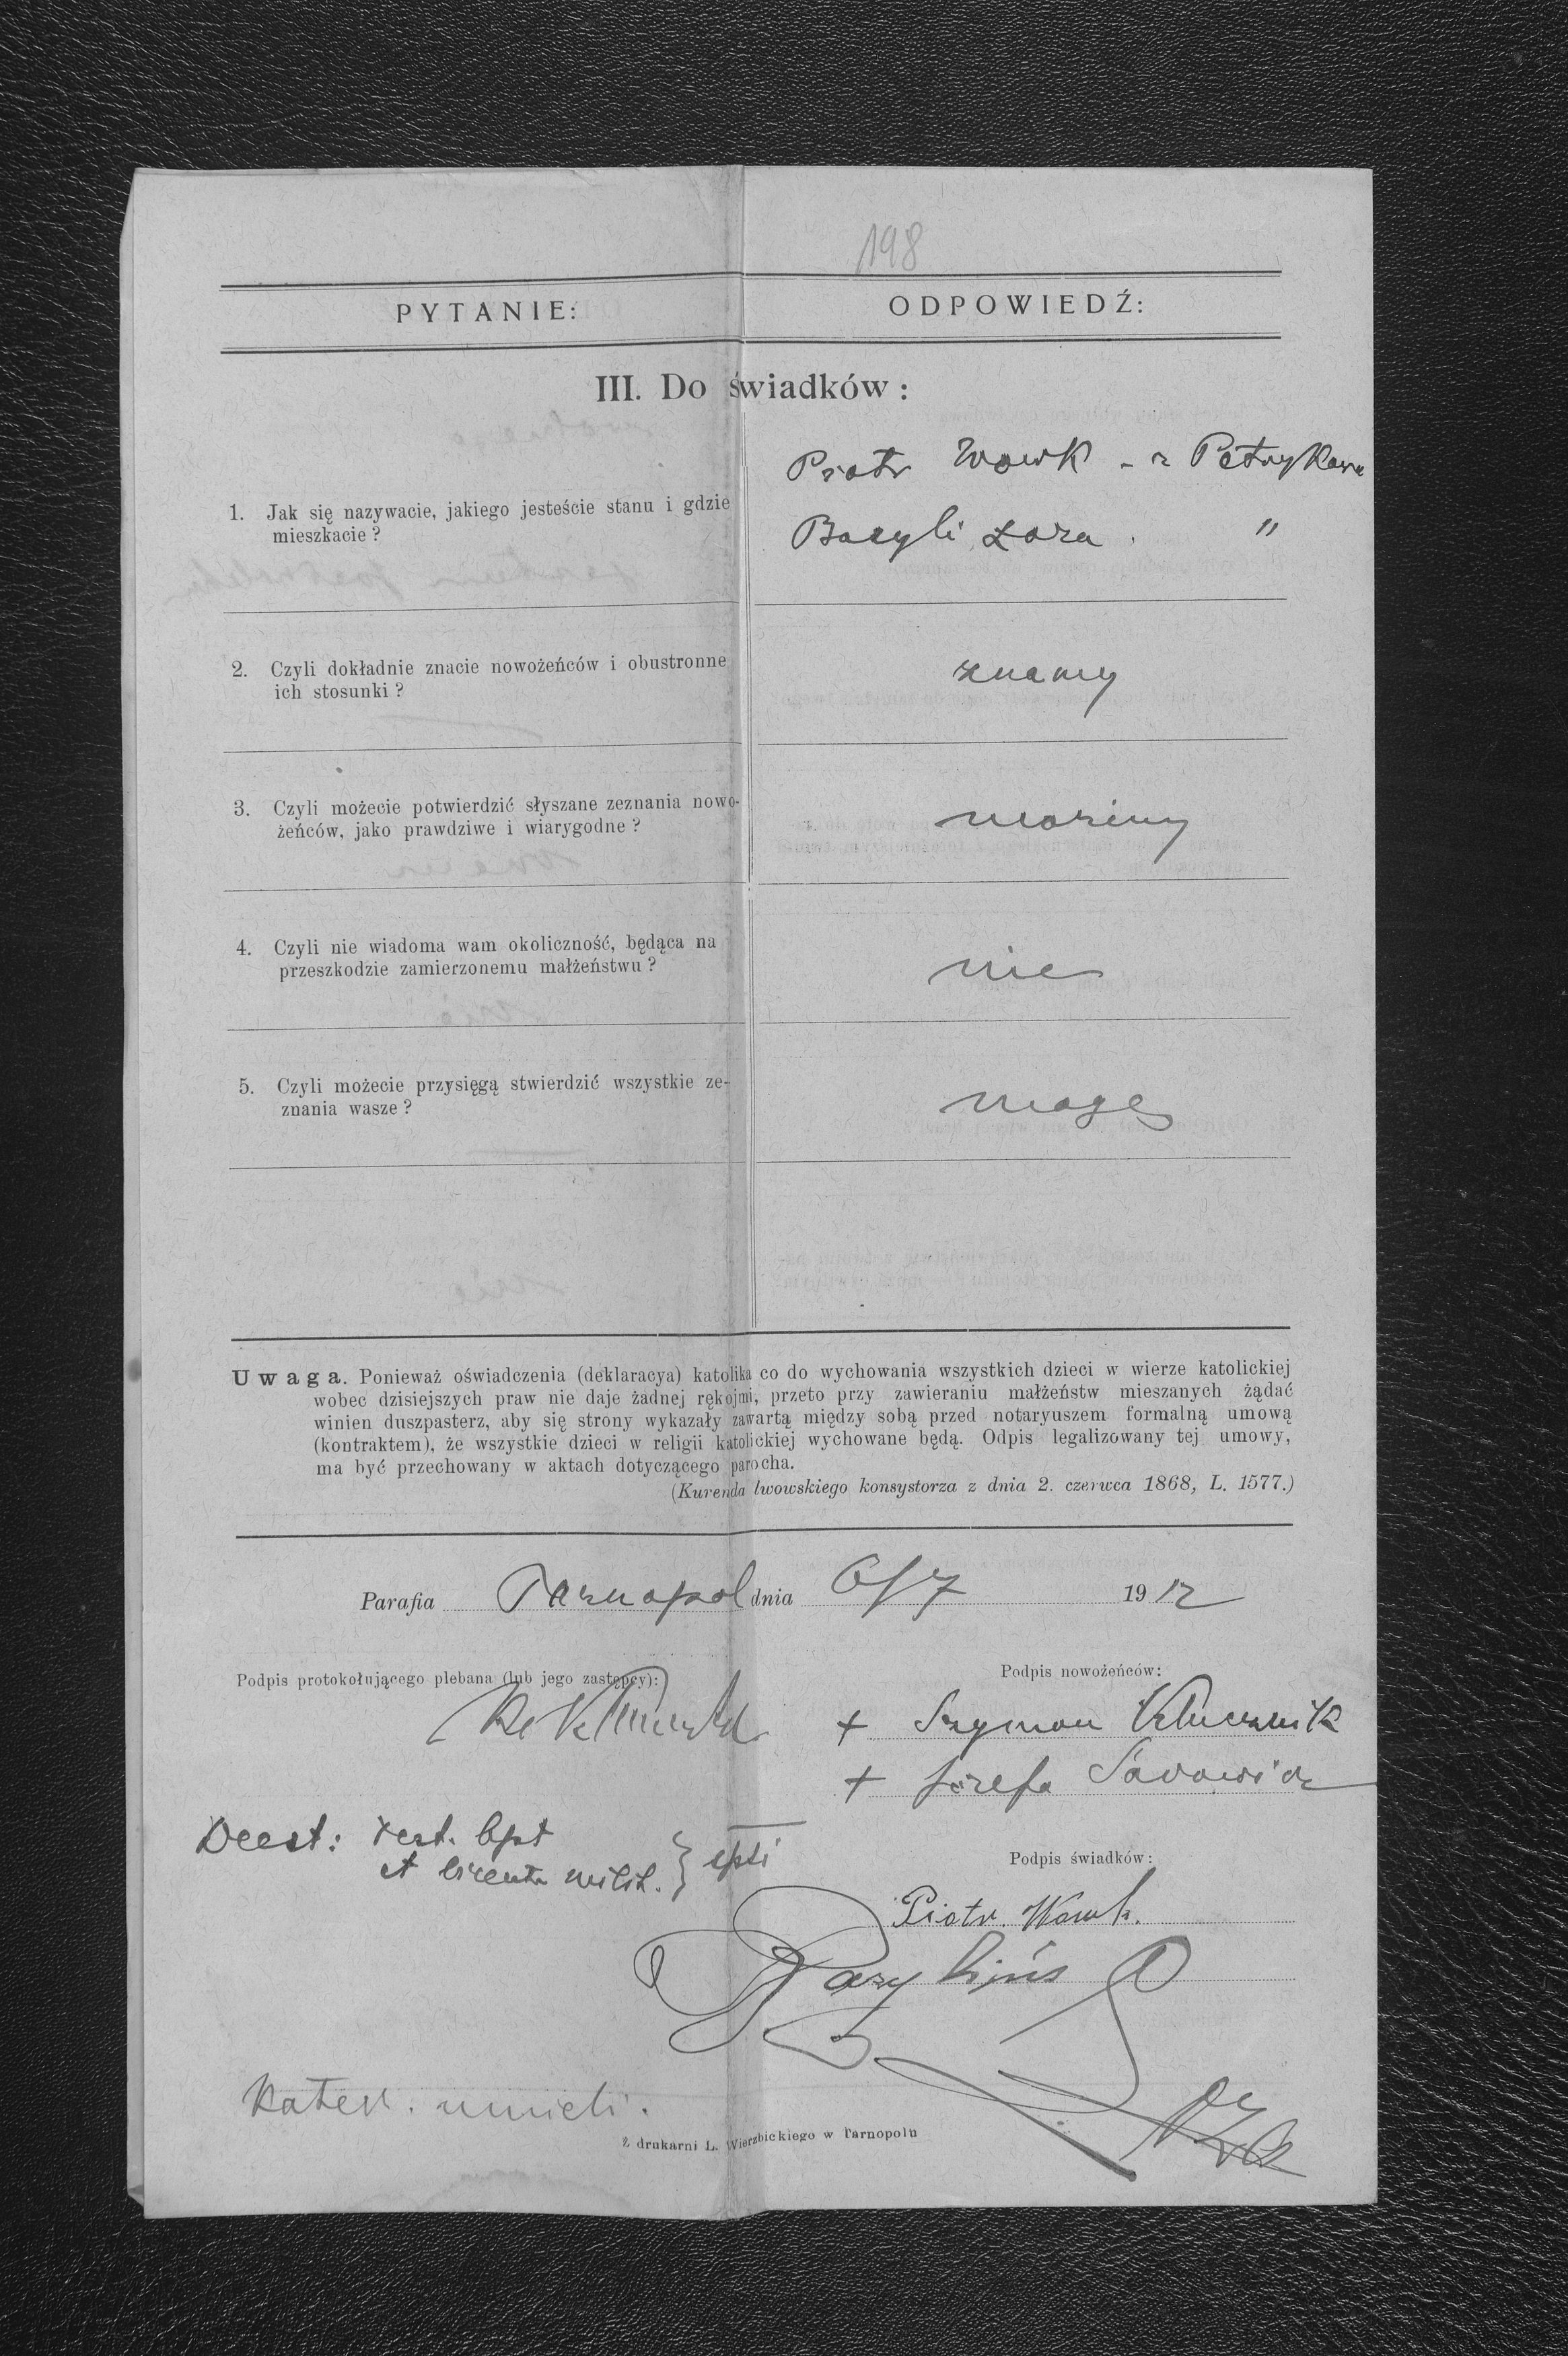 198
PYTANIE:
ODPOWIEDŹ:
III. Do świadków:
1. Jak się nazywacie, jakiego jesteście stanu i gdzie
mieszkacie?
Piotr Wowk - z Petrykowa
Bazyli Łoza "
2. Czyli dokładnie znacie nowożeńców i obustronne
ich stosunki?
znamy
3. Czyli możecie potwierdzić słyszane zeznania nowo-
żeńców, jako prawdziwe i wiarygodne?
możimy
4. Czyli nie wiadoma wam okoliczność, będąca na
przeszkodzie zamierzonemu małżeństwu?
nie
5. Czyli możecie przysięgą stwierdzić wszystkie ze-
znania wasze?
mogę
Uwaga. Ponieważ oświadczenia (deklaracya) katolika co do wychowania wszystkich dzieci w wierze katolickiej
wobec dzisiejszych praw nie daje żadnej rękojmi, przeto przy zawieraniu małżeństw mieszanych żądać
winien duszpasterz, aby się strony wykazały zawartą między sobą przed notaryuszem formalną umową
(kontraktem), że wszystkie dzieci w religii katolickiej wychowane będą. Odpis legalizowany tej umowy,
ma być przechowany w aktach dotyczącego parocha.
(Kurenda lwowskiego konsystorza z dnia 2. czerwca 1868, L. 1577.)
Parafia Tarnopol dnia 6/7 1912
Podpis protokołującego plebana (lub jego zastępcy):
Podpis nowożeńców:
+ Szymon Klucznik
+ Józefa
Deest: test. bpt
et licentia milit. } spsi
Podpis świadków:
Piotr Wowk.
Kater. umieli.
Z drukarni L. Wierzbickiego w Tarnopolu